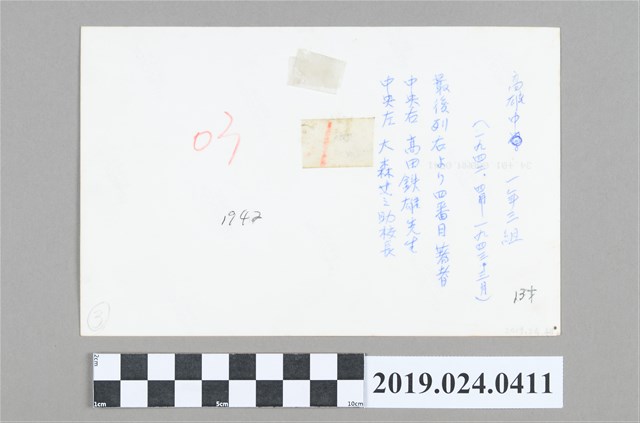 高雄中学 一年三組
(一九四二.四月—一九四三.三月)
最後列右より四番目著者
中央右 高田鉄雄先生
中央左 大森忠之助校長
13才
03
1
1942
3
2cm
1cm
5cm
10cm
2019.024.0411